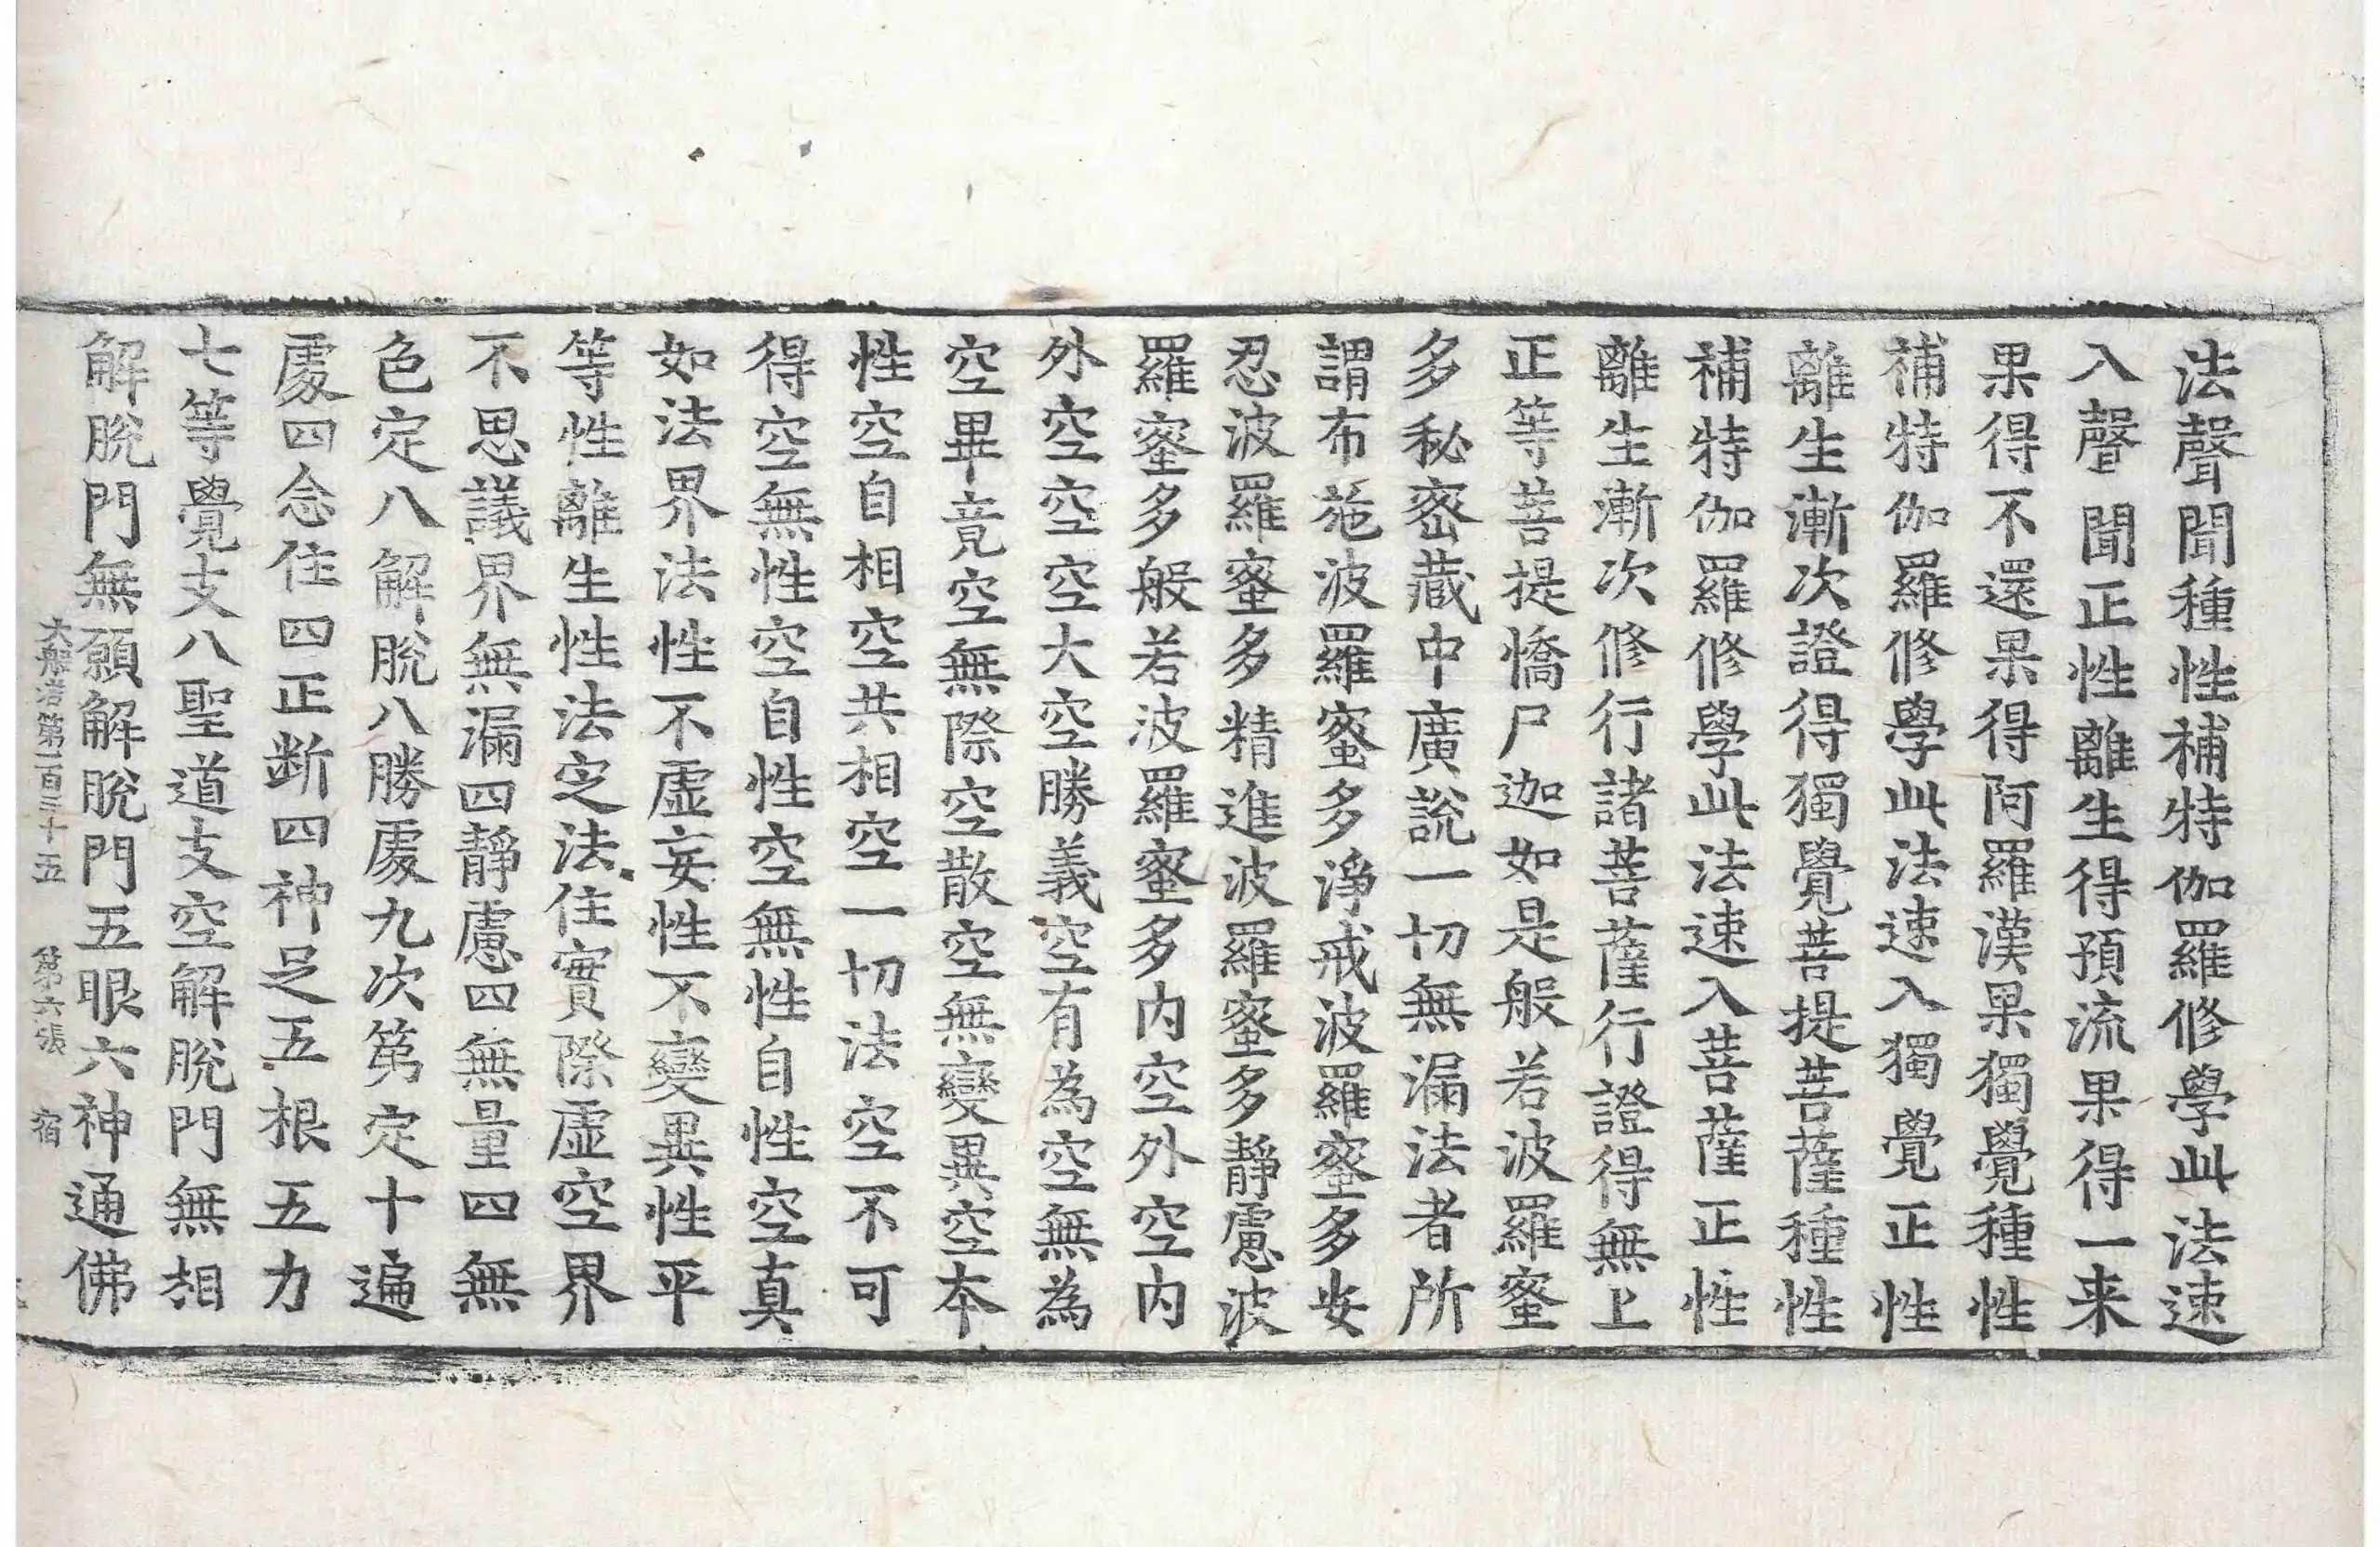 法聲聞種性補特伽羅修學此法速
入聲聞正性離生得預流果得一来
果得不還果得阿羅漢果獨覺種性
補特伽羅修學此法速入獨覺正性
離生漸次證得獨覺菩提菩薩種性
補特伽羅修學此法速入菩薩正性
離生漸次修行諸菩薩行證得無上
正等菩提憍尸迦如是般若波羅蜜
多秘密藏中廣說一切無漏法者所
謂布施波羅蜜多淨戒波羅蜜多安
忍波羅蜜多精進波羅蜜多靜慮波
羅蜜多般若波羅蜜多内空外空内
外空空空大空勝義空有為空無為
空畢竟空無際空散空無變異空本
性空自相空共相空一切法空不可
得空無性空自性空無性自性空真
如法界法性不虛妄性不變異性平
等性離生性法定法住實際虛空界
不思議界無漏四靜慮四無量四無
色定八解脫八勝處九次第定十遍
處四念住四正斷四神足五根五力
七等覺支八聖道支空解脫門無相
解脫門無願解脫門五眼六神通佛
大般若第一百三十五 第六張 宿